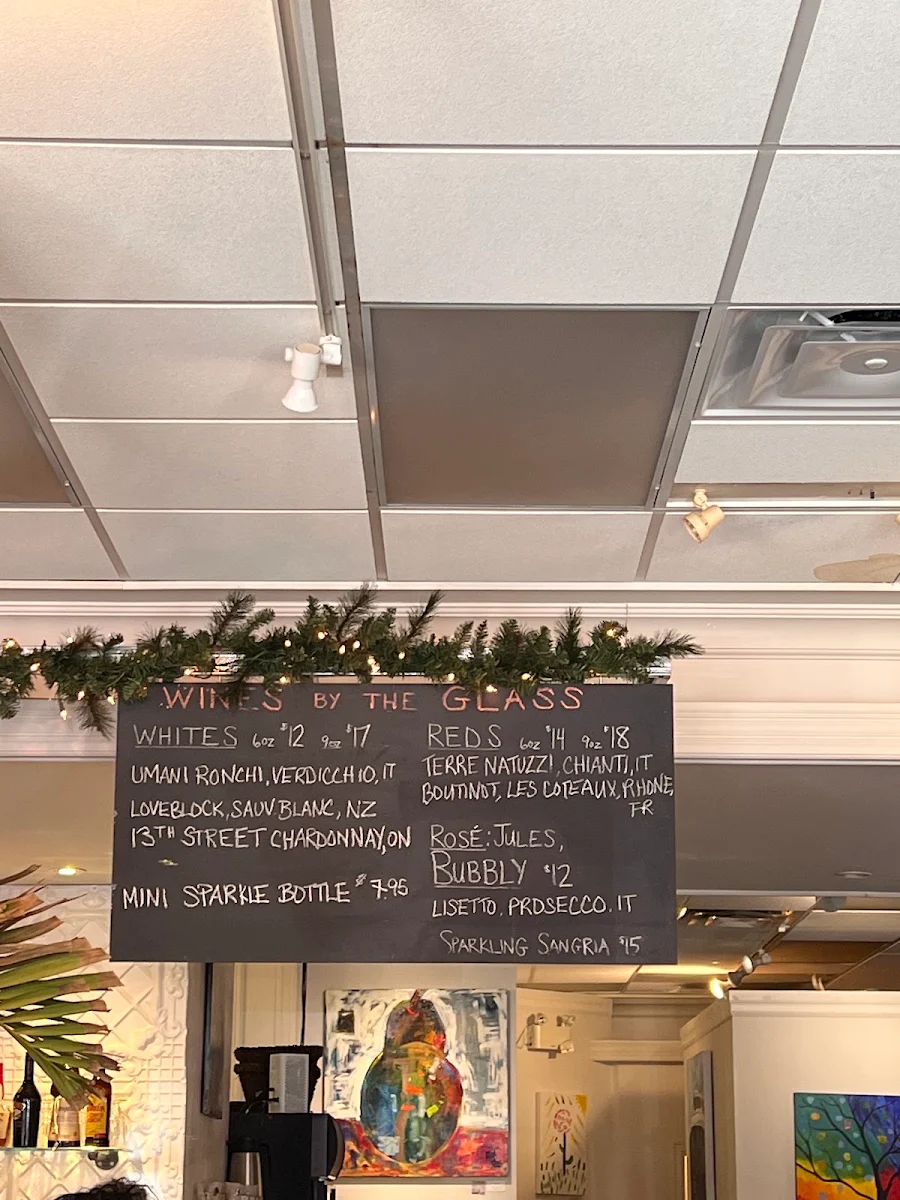 WINES BY THE GLASS
WHITES 6oz $12 9oz $17
UMANI RONCHI, VERDICCHIO, IT
LOVEBLOCK, SAUV. BLANC, NZ
13TH STREET CHARDONNAY, ON
MINI SPARKLE BOTTLE $7.95
REDS 6oz $14 9oz $18
TERRE NATUZZI, CHIANTI, IT
BOUTINOT, LES COTEAUX, RHONE,
FR
ROSÉ: JULES,
BUBBLY $12
LISETTO, PROSECCO, IT
SPARKLING SANGRIA $15